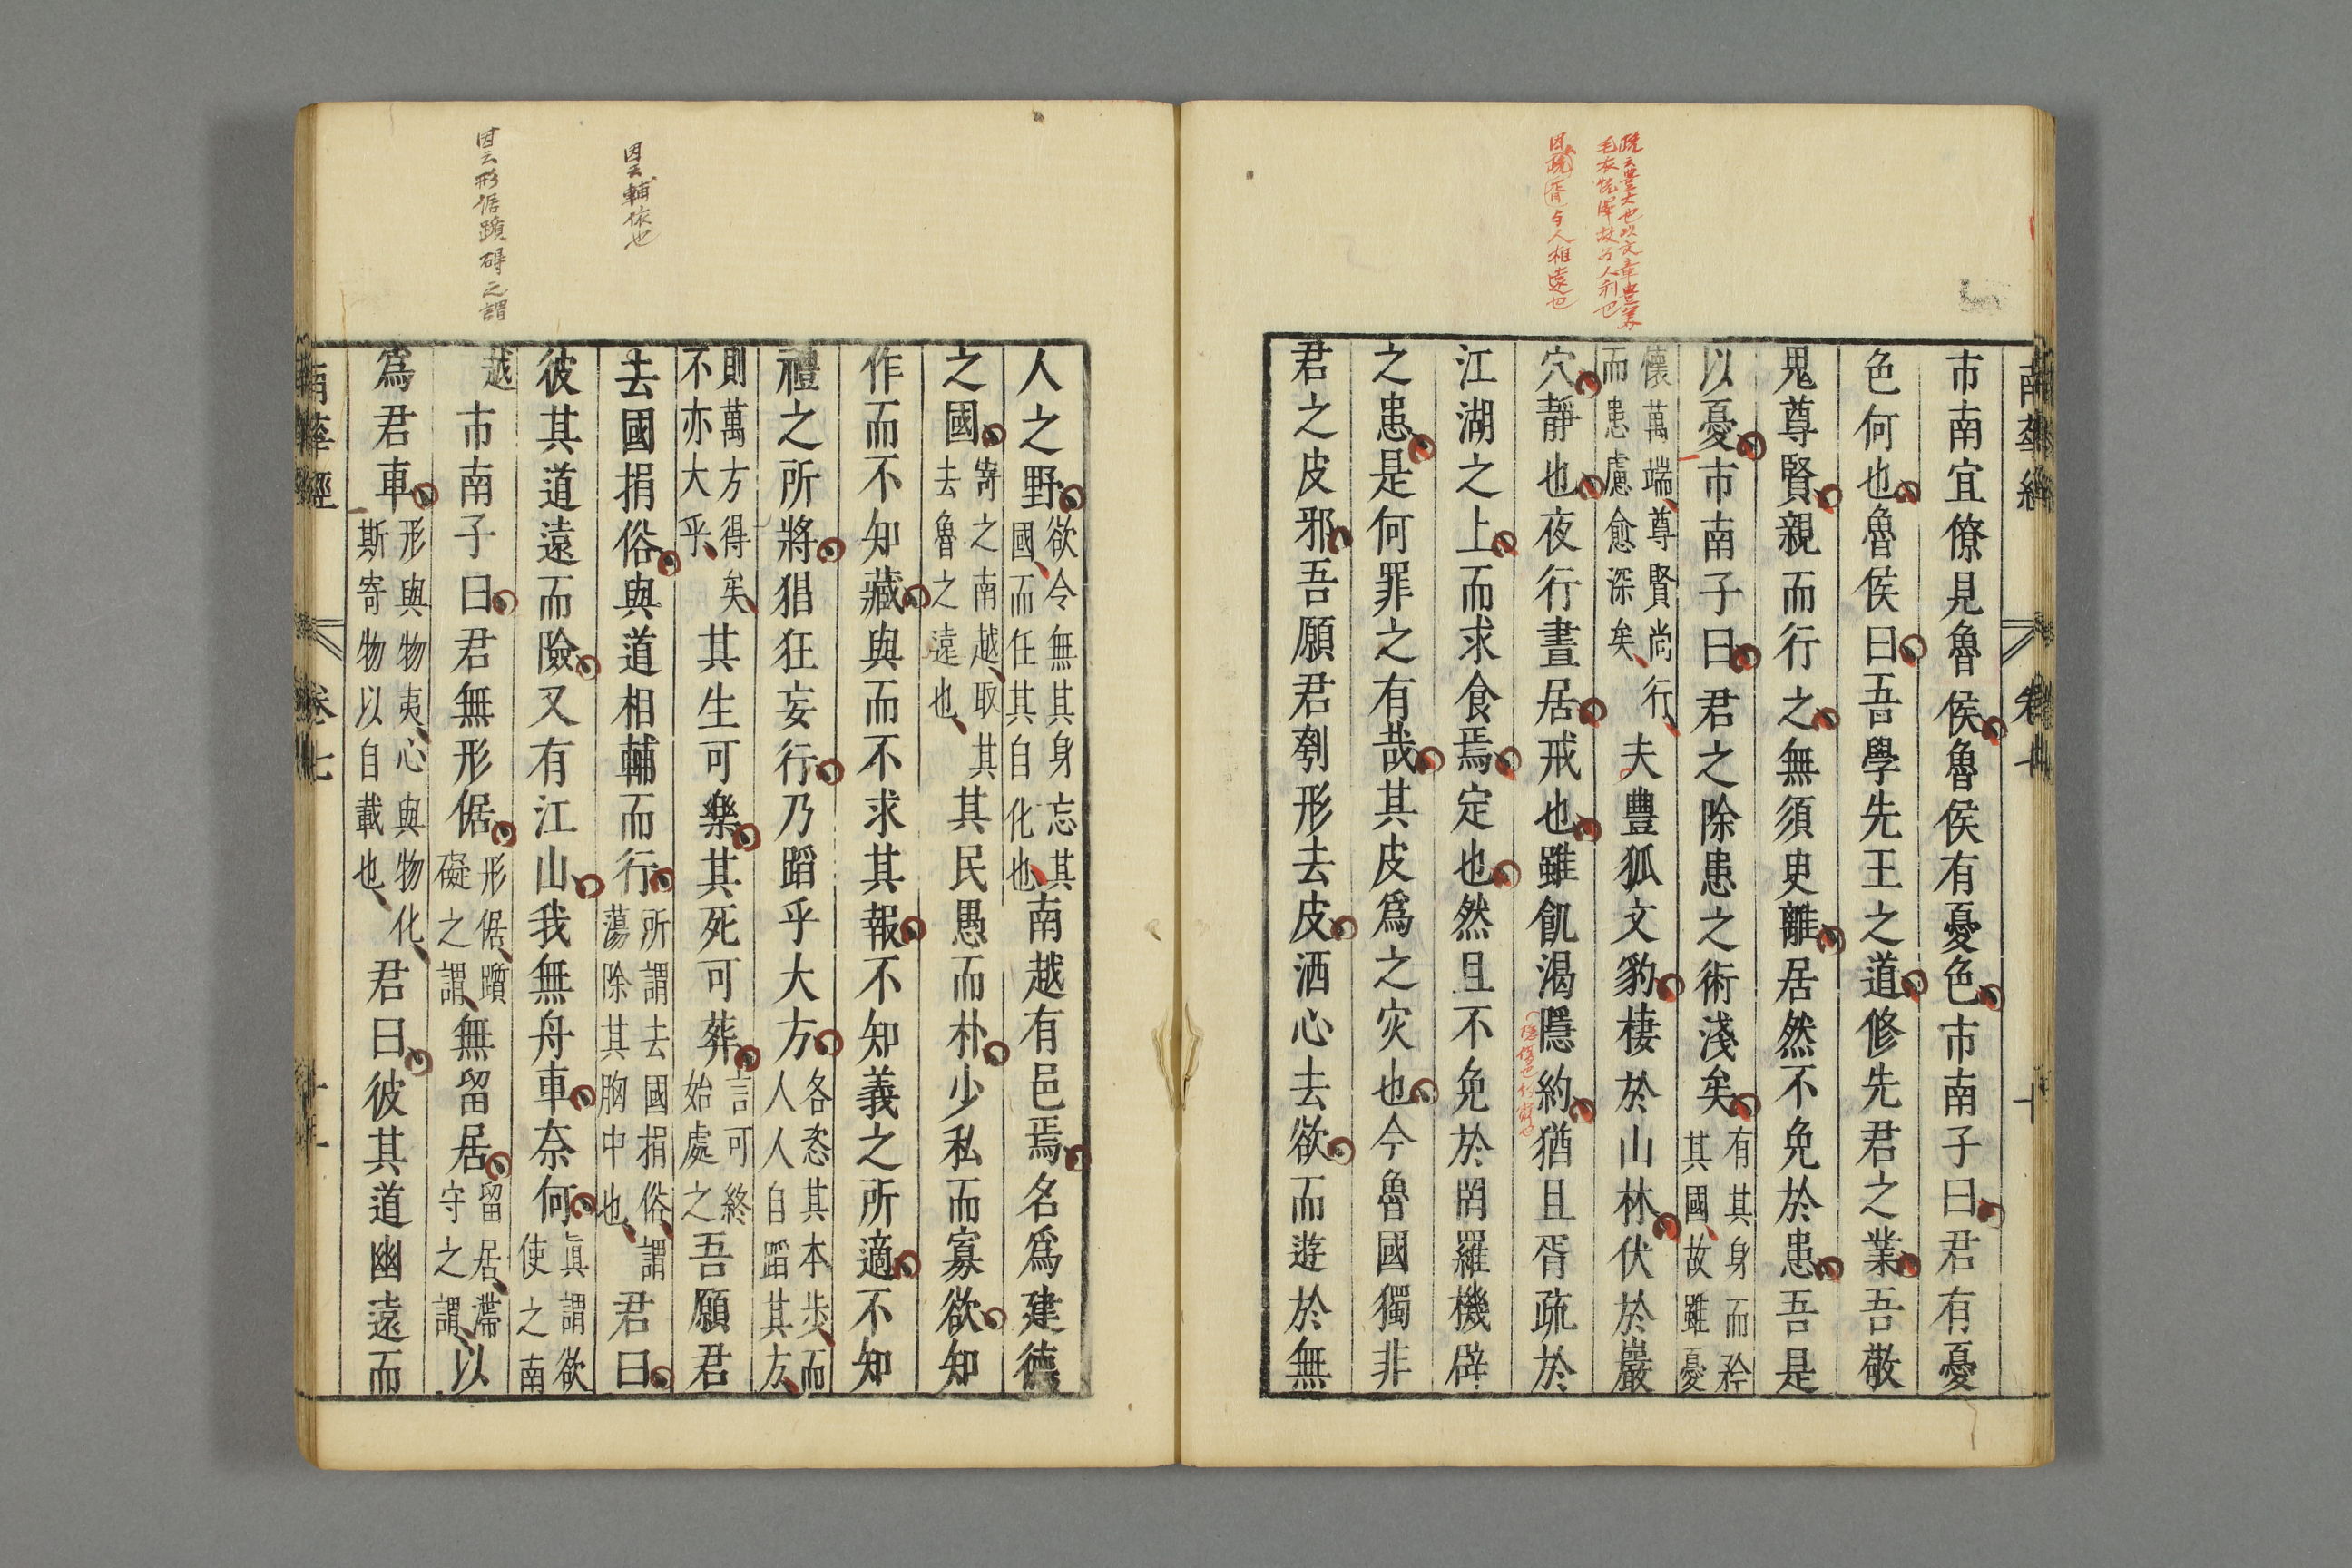 疏云豊大也以文章豊美
毛衣悅澤故爲人利也
因疏胥与人相遠也
南華經 卷七 十
市南宜僚見魯侯魯侯有憂色市南子曰君有憂
色何也魯侯曰吾學先王之道修先君之業吾敬
鬼尊賢親而行之無須臾離居然不免於患吾是
以憂市南子曰君之除患之術淺矣有其身而矜
其國故雖憂
懷萬端尊賢尚行
而患慮愈深矣
夫豐狐文豹棲於山林伏於巖
穴靜也夜行晝居戒也雖飢渴隱約猶且胥疏於
江湖之上而求食焉定也然且不免於罔羅機辟
之患是何罪之有哉其皮爲之灾也今魯國獨非
君之皮邪吾願君刳形去皮洒心去欲而遊於無
因云輔依也
因云形倨躓碍之謂
人之野欲令無其身忘其
國而任其自化也
南越有邑焉名爲建德
之國寄之南越取其
去魯之遠也
其民愚而朴少私而寡欲知
作而不知藏與而不求其報不知義之所適不知
禮之所將猖狂妄行乃蹈乎大方各恣其本步而
人人自蹈其方
則萬方得矣
不亦大乎
其生可樂其死可葬言可終
始處之
吾願君
去國捐俗與道相輔而行所謂去國捐俗謂
蕩除其胸中也
君曰
彼其道遠而險又有江山我無舟車奈何眞謂欲
使之南
越
市南子曰君無形倨形倨躓
礙之謂
無留居留居滯
守之謂
以
爲君車形與物夷心與物化
斯寄物以自載也
君曰彼其道幽遠而
南華經 卷七 十一